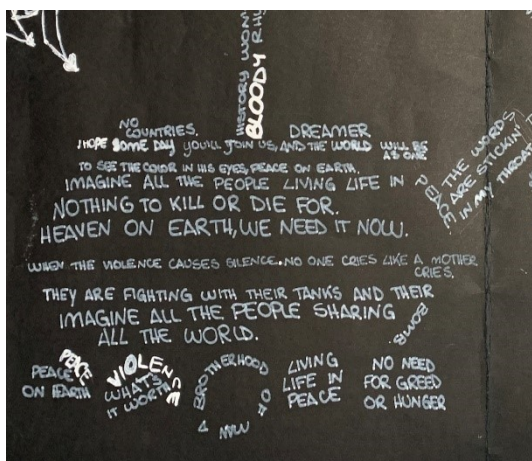 HISTORY WON'T
BLOODY RHY
NO
COUNTRIES.
DREAMER
I HOPE SOME DAY YOU'LL JOIN US, AND THE WORLD WILL BE
AS ONE
TO SEE THE COLOR IN HIS EYES, PEACE ON EARTH.
IMAGINE ALL THE PEOPLE LIVING LIFE IN
PEACE.
NOTHING TO KILL OR DIE FOR.
HEAVEN ON EARTH, WE NEED IT NOW.
THE WORDS
ARE STICKIN
IN MY THROAT
WHEN THE VIOLENCE CAUSES SILENCE. NO ONE CRIES LIKE A MOTHER
CRIES.
THEY ARE FIGHTING WITH THEIR TANKS AND THEIR
BOMB.
IMAGINE ALL THE PEOPLE SHARING
ALL THE WORLD.
PEACE
PEACE
ON EARTH
VIOLENCE
WHAT'S
IT WORTH
BROTHERHOOD
OF
MAN
LIVING
LIFE IN
PEACE
NO NEED
FOR GREED
OR HUNGER